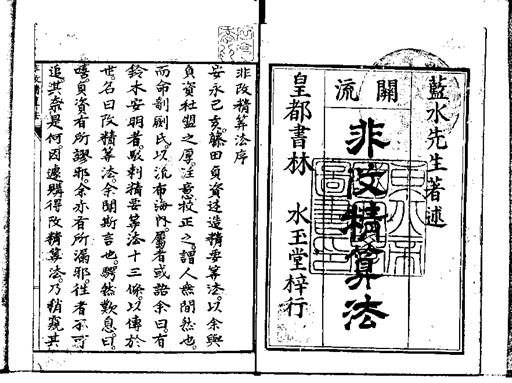 藍水先生著述
關流
非改精算法
皇都書林 水玉堂梓行
非改精算法序
安永己亥藤田貞資廷造精要算法以余與
貞資社盟之厚注意校正之謂人無間然也
而命剞劂氏以流布海內屬者或語余曰有
鈴木安明者駁刺精要算法十三條以傳於
世名曰改精算法余聞斯言也愕然歎息曰
噫貞資有所謬邪余亦有所漏邪往者不可
追其奈是何因遽購得改精算法乃稍窺其